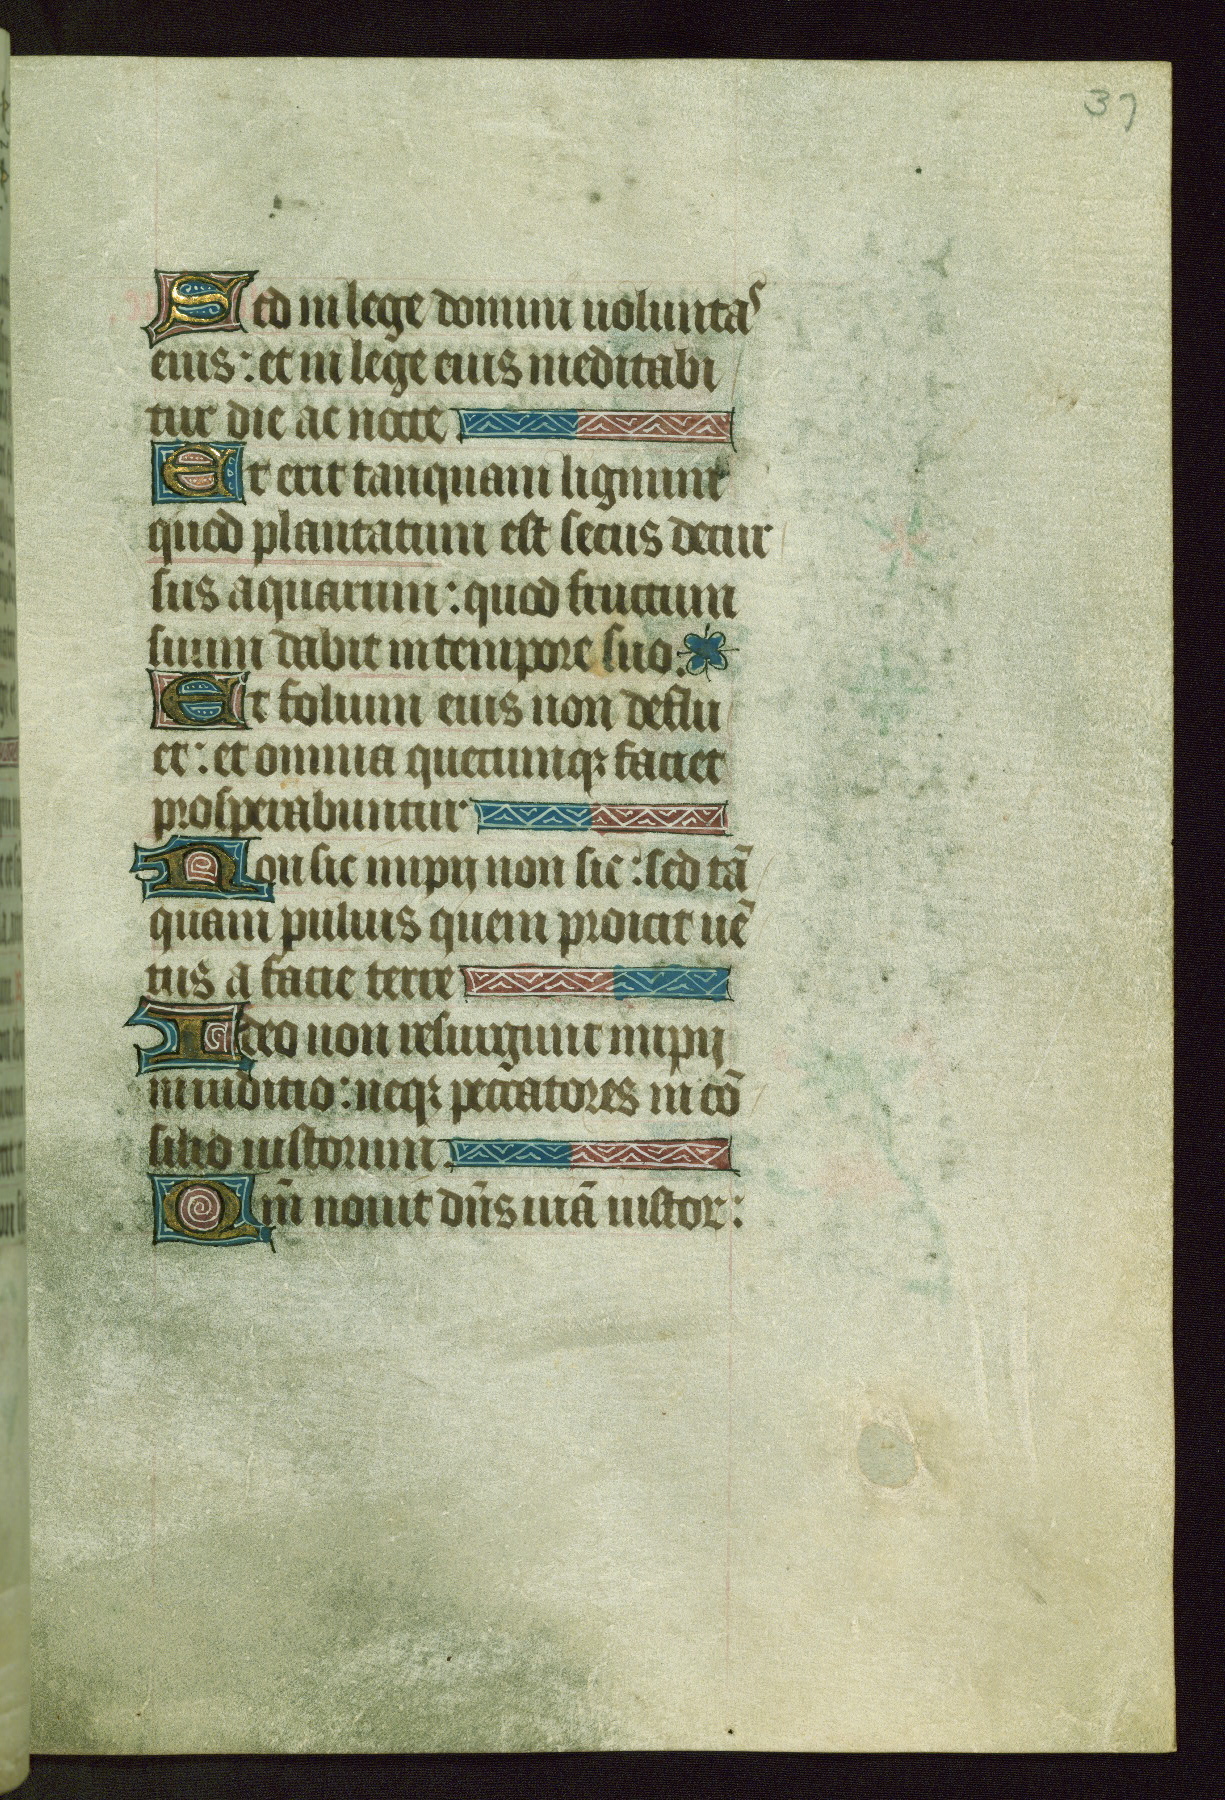 37
Sed in lege domini uoluntas
eius: et in lege eius meditabi
tur die ac nocte
Et erit tanquam lignum
quod plantatum est secus decur
sus aquarum: quod fructum
suum dabit in tempore suo.
Et folium eius non deflu
et: et omnia quecumqꝫ faciet
prosperabuntur
Non sic impij non sic: sed tā
quam puluis quem proicit uē
tus a facie terre
Ideo non resurgunt impij
in iuditio: neqꝫ peccatores in cō
silio iustorum.
Qm̄ nouit dn̄s uiā iustor: